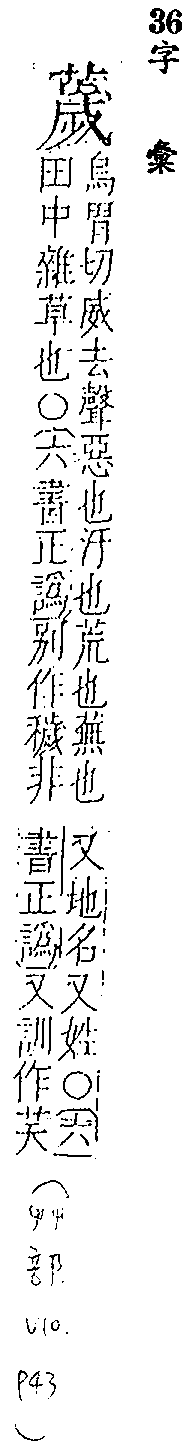 36字 彙
薉
烏胃切威去聲惡也汙也荒也蕪也
田中雜草也○(六書正譌)別作穢非
又地名又姓○(六
書正譌)又訓作
(艸部 V10. P43)